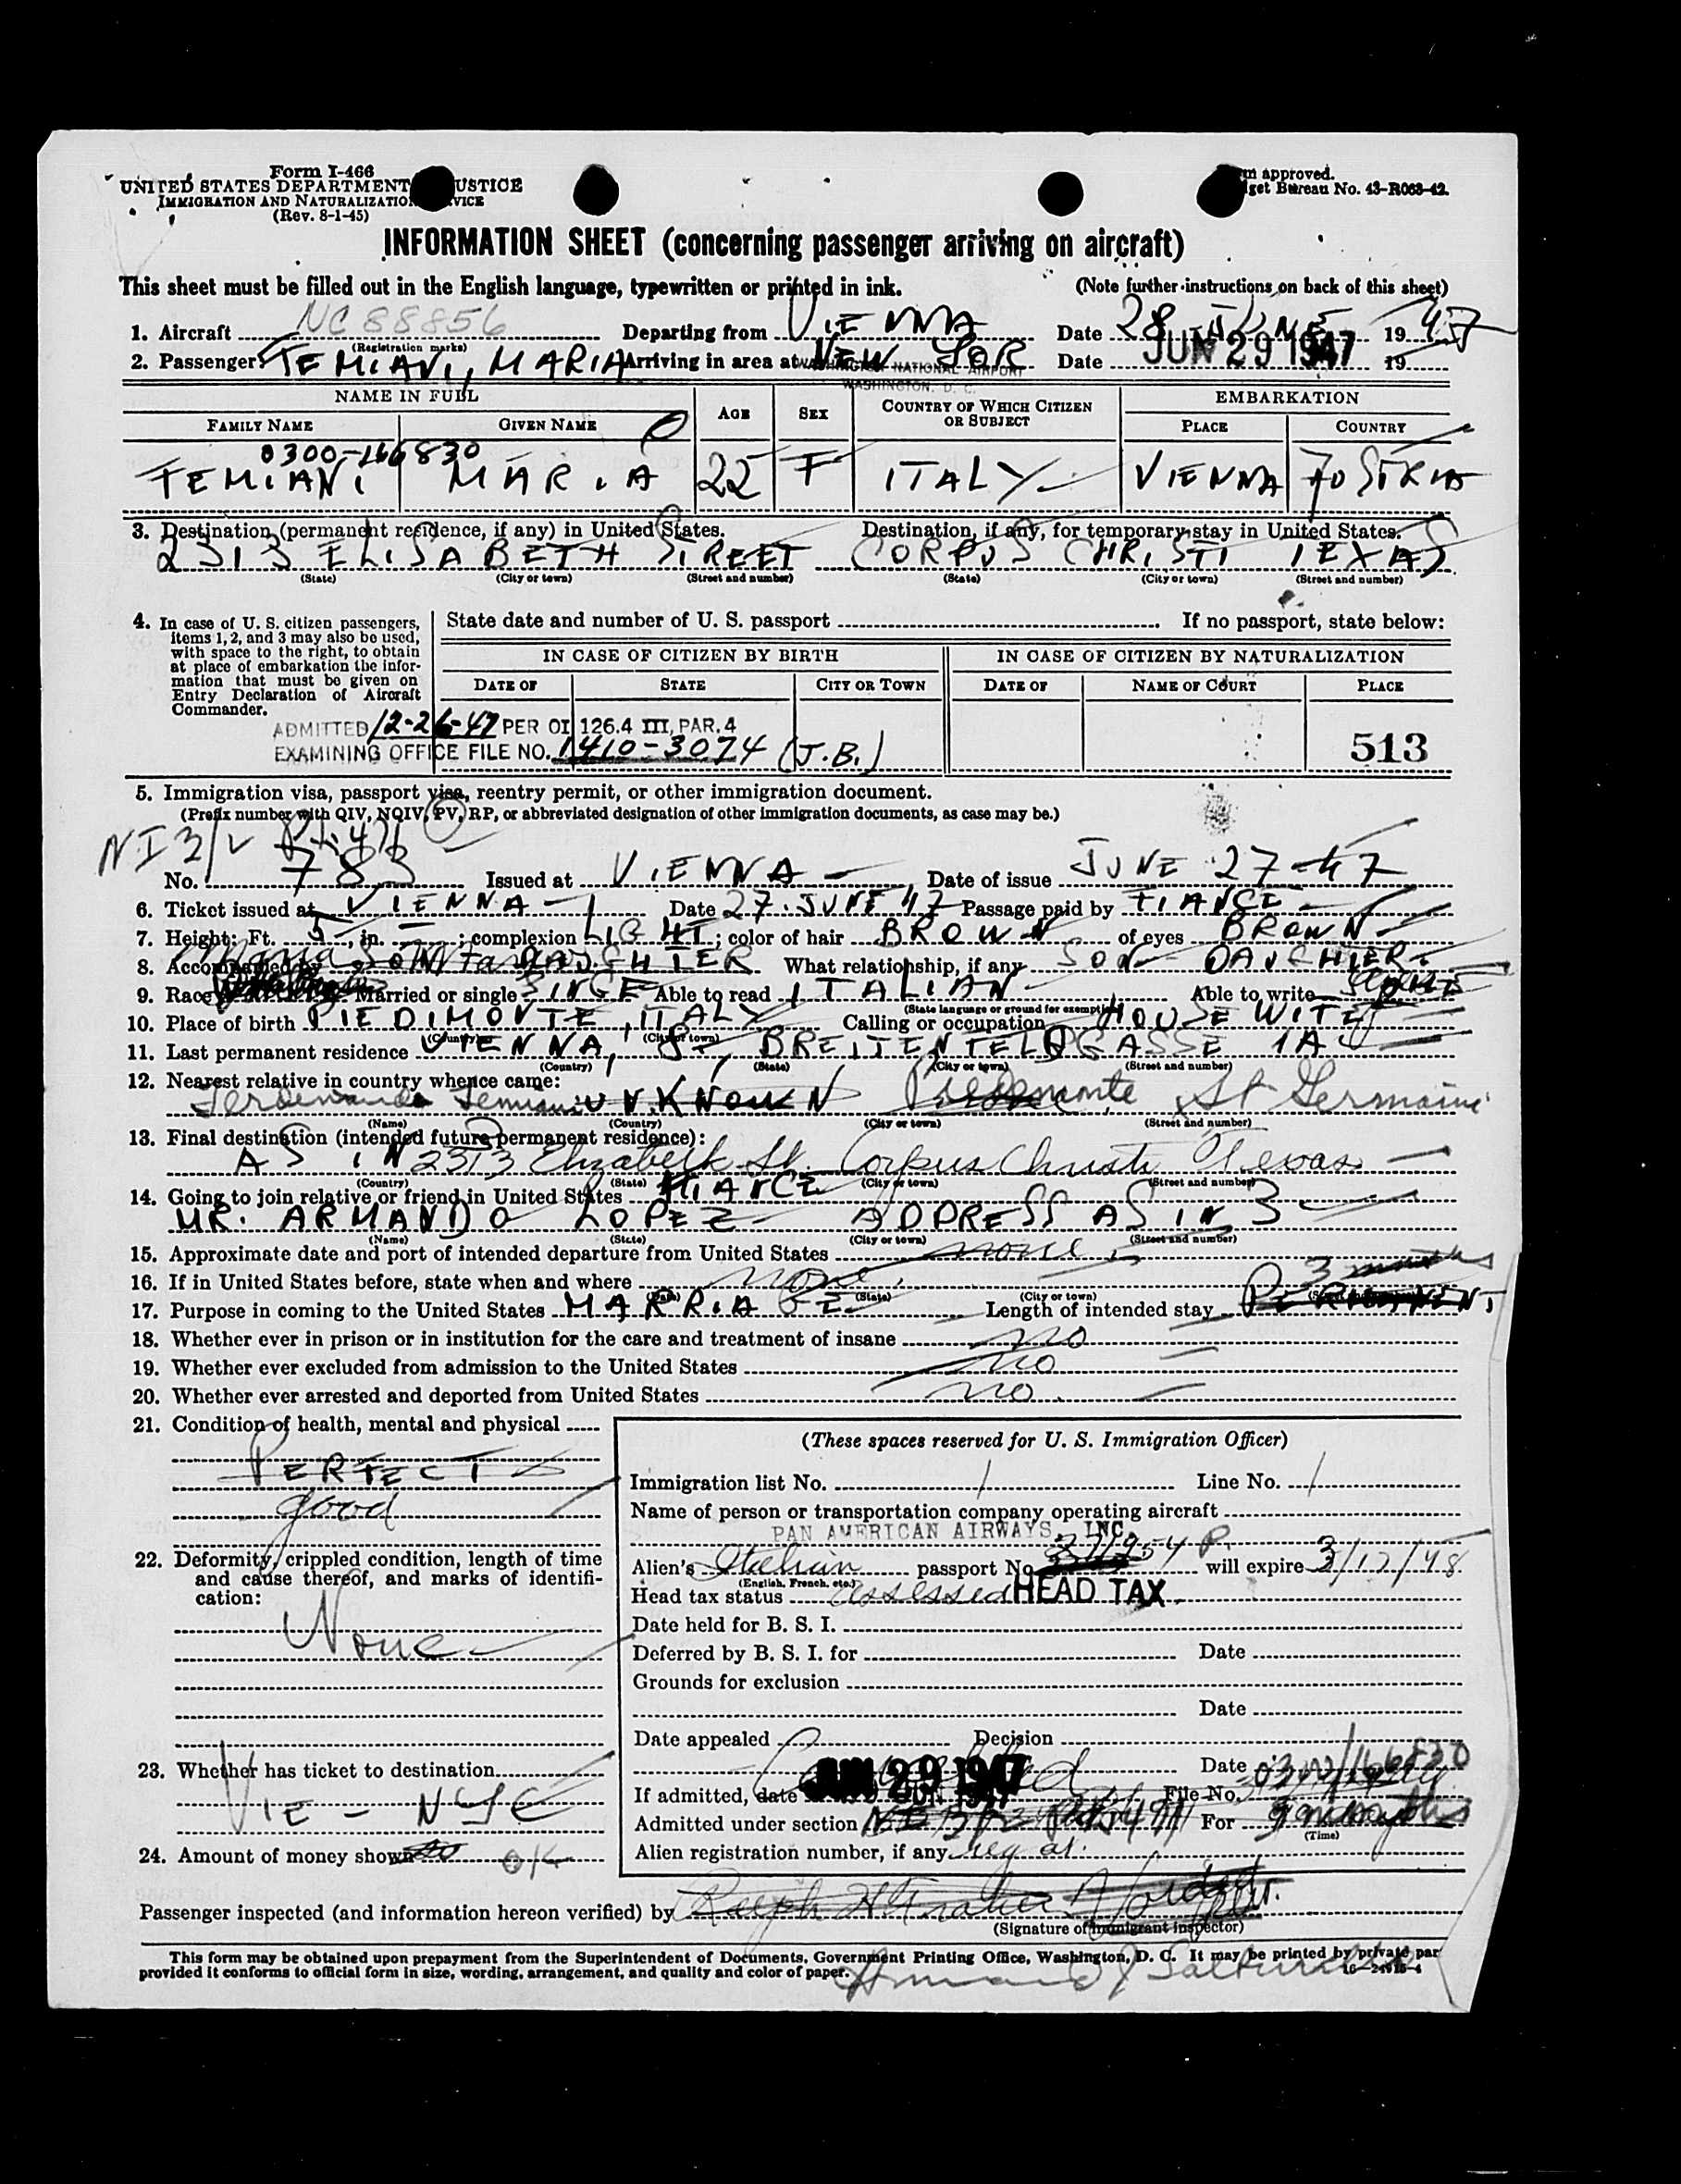 Form I-466
UNITED STATES DEPARTMENT USTICE
IMMIGRATION AND NATURALIZATION VICE
(Rev. 8-1-45)
m approved.
get Bureau No. 43-R063-42.
INFORMATION SHEET (concerning passenger arriving on aircraft)
This sheet must be filled out in the English language, typewritten or printed in ink. (Note further instructions on back of this sheet)
1. Aircraft NC 88856 Departing from VIENNA Date 28 JUNE 1947
(Registration marks)
2. Passenger TEMIANI, MARIA Arriving in area at NEW YOR Date JUN 29 1947 19
WASHINGTON NATIONAL AIRPORT
WASHINGTON, D. C.
NAME IN FULL AGE SEX COUNTRY OF WHICH CITIZEN OR SUBJECT EMBARKATION
FAMILY NAME GIVEN NAME PLACE COUNTRY
0300-166830
TEMIANI MARIA 22 F ITALY VIENNA
3. Destination (permanent residence, if any) in United States. Destination, if any, for temporary stay in United States.
2313 ELISABETH STREET CORPUS CHRISTI TEXAS
(State) (City or town) (Street and number) (State) (City or town) (Street and number)
4. In case of U. S. citizen passengers, items 1, 2, and 3 may also be used, with space to the right, to obtain at place of embarkation the information that must be given on Entry Declaration of Aircraft Commander.
State date and number of U. S. passport If no passport, state below:
IN CASE OF CITIZEN BY BIRTH IN CASE OF CITIZEN BY NATURALIZATION
DATE OF STATE CITY OR TOWN DATE OF NAME OF COURT PLACE
ADMITTED 12-26-47 PER OI 126.4 III, PAR. 4
EXAMINING OFFICE FILE NO. 1410-3074 (J.B.)
513
5. Immigration visa, passport visa, reentry permit, or other immigration document.
(Prefix number with QIV, NQIV, PV, RP, or abbreviated designation of other immigration documents, as case may be.)
No. 783 Issued at VIENNA Date of issue JUNE 27-47
6. Ticket issued at VIENNA Date 27. JUNE 47 Passage paid by FIANCE
7. Height: Ft. 5, in. ; complexion LIGHT; color of hair BROWN of eyes BROWN
8. Accompanied by DAUGHTER What relationship, if any SON DAUGHTER
9. Race Married or single SINGE Able to read ITALIAN Able to write
(State language or ground for exemption)
10. Place of birth PIEDIMONTE, ITALY Calling or occupation HOUSE WIFE
(Country) (City or town)
11. Last permanent residence VIENNA, 8, BREITENFELDGASSE 1A
(Country) (State) (City or town) (Street and number)
12. Nearest relative in country whence came:
UNKNOWN St Germaine
(Name) (Country) (City or town) (Street and number)
13. Final destination (intended future permanent residence):
AS IN 2313 Elizabeth St. Corpus Christi Texas
(Country) (State) (City or town) (Street and number)
14. Going to join relative or friend in United States FIANCE
MR. ARMANDO LOPEZ ADDRESS AS IN 3
(Name) (State) (City or town) (Street and number)
15. Approximate date and port of intended departure from United States none
16. If in United States before, state when and where none
(Date) (State) (City or town)
3 months
17. Purpose in coming to the United States MARRIAGE Length of intended stay PERMANENT
18. Whether ever in prison or in institution for the care and treatment of insane no
19. Whether ever excluded from admission to the United States no
20. Whether ever arrested and deported from United States no
21. Condition of health, mental and physical
PERFECT
good
22. Deformity, crippled condition, length of time and cause thereof, and marks of identification:
None
23. Whether has ticket to destination
VIE - NYC
24. Amount of money shown OK
(These spaces reserved for U. S. Immigration Officer)
Immigration list No. 1 Line No. 1
Name of person or transportation company operating aircraft
PAN AMERICAN AIRWAYS, INC.
Alien's Italian passport No. will expire 3/12/48
(English, French, etc.)
Head tax status assessed HEAD TAX
Date held for B. S. I.
Deferred by B. S. I. for Date
Grounds for exclusion
Date
Date appealed Decision
Date
If admitted, date JUN 29 1947 File No.
Admitted under section For
(Time)
Alien registration number, if any
Passenger inspected (and information hereon verified) by
(Signature of immigrant inspector)
This form may be obtained upon prepayment from the Superintendent of Documents, Government Printing Office, Washington, D. C. It may be printed by private par
provided it conforms to official form in size, wording, arrangement, and quality and color of paper.